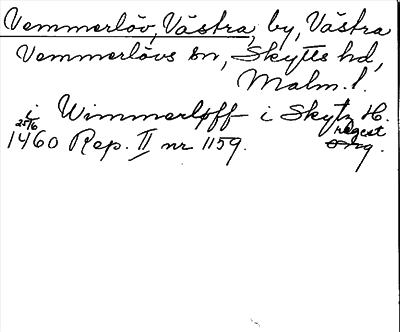 Vemmerlöv, Västra, by, Västra
Vemmerlövs sn, Skytts hd,
Malm. l.
i Wimmerløff i Skytz H.
25/6 regest
1460 Rep. II nr 1159. Orig.